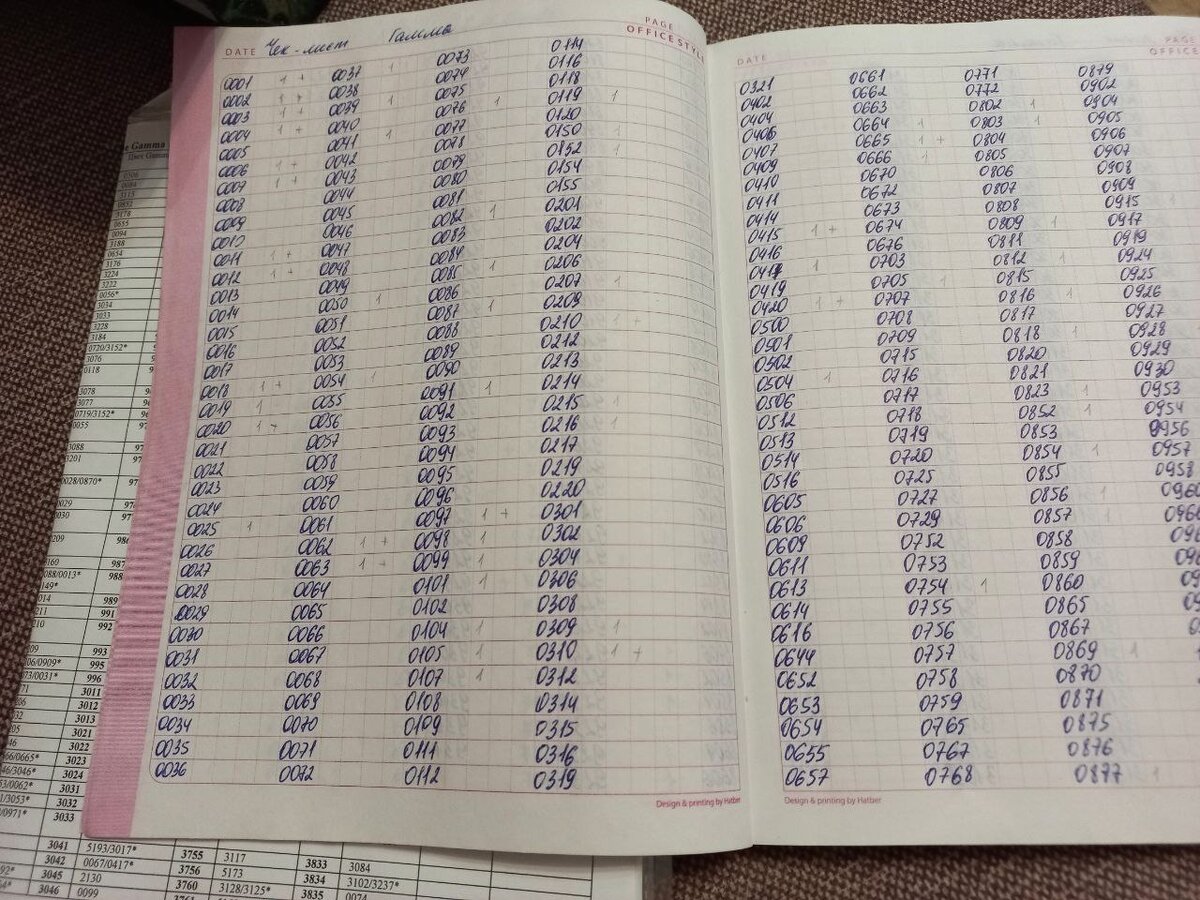 DATE Чек-лист Гамма PAGE
OFFICE STYLE
0001 1 +
0002 1 +
0003 1 +
0004 1 +
0005
0006 1 +
0007 1 +
0008
0009
0010
0011 1 +
0012 1 +
0013
0014
0015
0016
0017
0018 1 +
0019 1
0020 1 +
0021
0022
0023
0024
0025 1
0026
0027
0028
0029
0030
0031
0032
0033
0034
0035
0036
0037
0038
0039 1
0040
0041 1
0042
0043
0044
0045
0046
0047
0048
0049
0050 1
0051
0052
0053
0054 1
0055
0056
0057
0058
0059
0060
0061
0062 1 +
0063 1 +
0064
0065
0066
0067
0068
0069
0070
0071
0072
0073
0074
0075
0076 1
0077
0078
0079
0080
0081
0082 1
0083
0084
0085 1
0086
0087 1
0088
0089
0090
0091 1
0092
0093
0094
0095
0096
0097 1 +
0098 1
0099 1
0101 1
0102
0104 1
0105 1
0107 1
0108
0109
0111
0112
0114
0116
0118
0119 1
0120
0150 1
0152 1
0154
0155
0201
0202
0204
0206
0207 1
0209
0210 1 +
0212
0213
0214
0215 1
0216 1
0217
0219
0220
0301
0302
0304
0306
0308
0309 1
0310 1 +
0312
0314
0315
0316
0319
Design & printing by Hatber
DATE
PAGE
OFFICE
0321
0402
0404
0406
0407
0409
0410
0411
0414
0415 1 +
0416
0417 1
0419
0420 1 +
0500
0501
0502
0504 1
0506
0512
0513
0514
0516
0605
0606
0609
0611
0613
0614
0616
0644
0652
0653
0654
0655
0657
0661
0662
0663
0664 1
0665 1 +
0666 1
0670
0672
0673
0674
0676
0703
0705 1
0707
0708
0709
0715
0716
0717
0718
0719
0720
0725
0727
0729
0752
0753
0754 1
0755
0756
0757
0758
0759
0765
0767
0768
0771
0772
0802 1
0803 1
0804
0805
0806
0807
0808
0809 1
0811
0812 1
0815
0816 1
0817
0818 1
0820
0821
0823 1
0852 1
0853
0854 1
0855
0856 1
0857 1
0858
0859
0860
0865
0867
0869 1
0870
0871
0875
0876
0877 1
0879
0902
0904
0905
0906
0907
0908
0909
0915
0917
0919
0924
0925
0926
0927
0928
0929
0930
0953
0954
0956
0957
0958
Design & printing by Hatber
3041 5193/3017* 3755 3117 3833 3084
3042 0067/0417* 3756 5173 3834 3102/3237*
3045 2130 3760 3128/3125* 3835
3046 0099